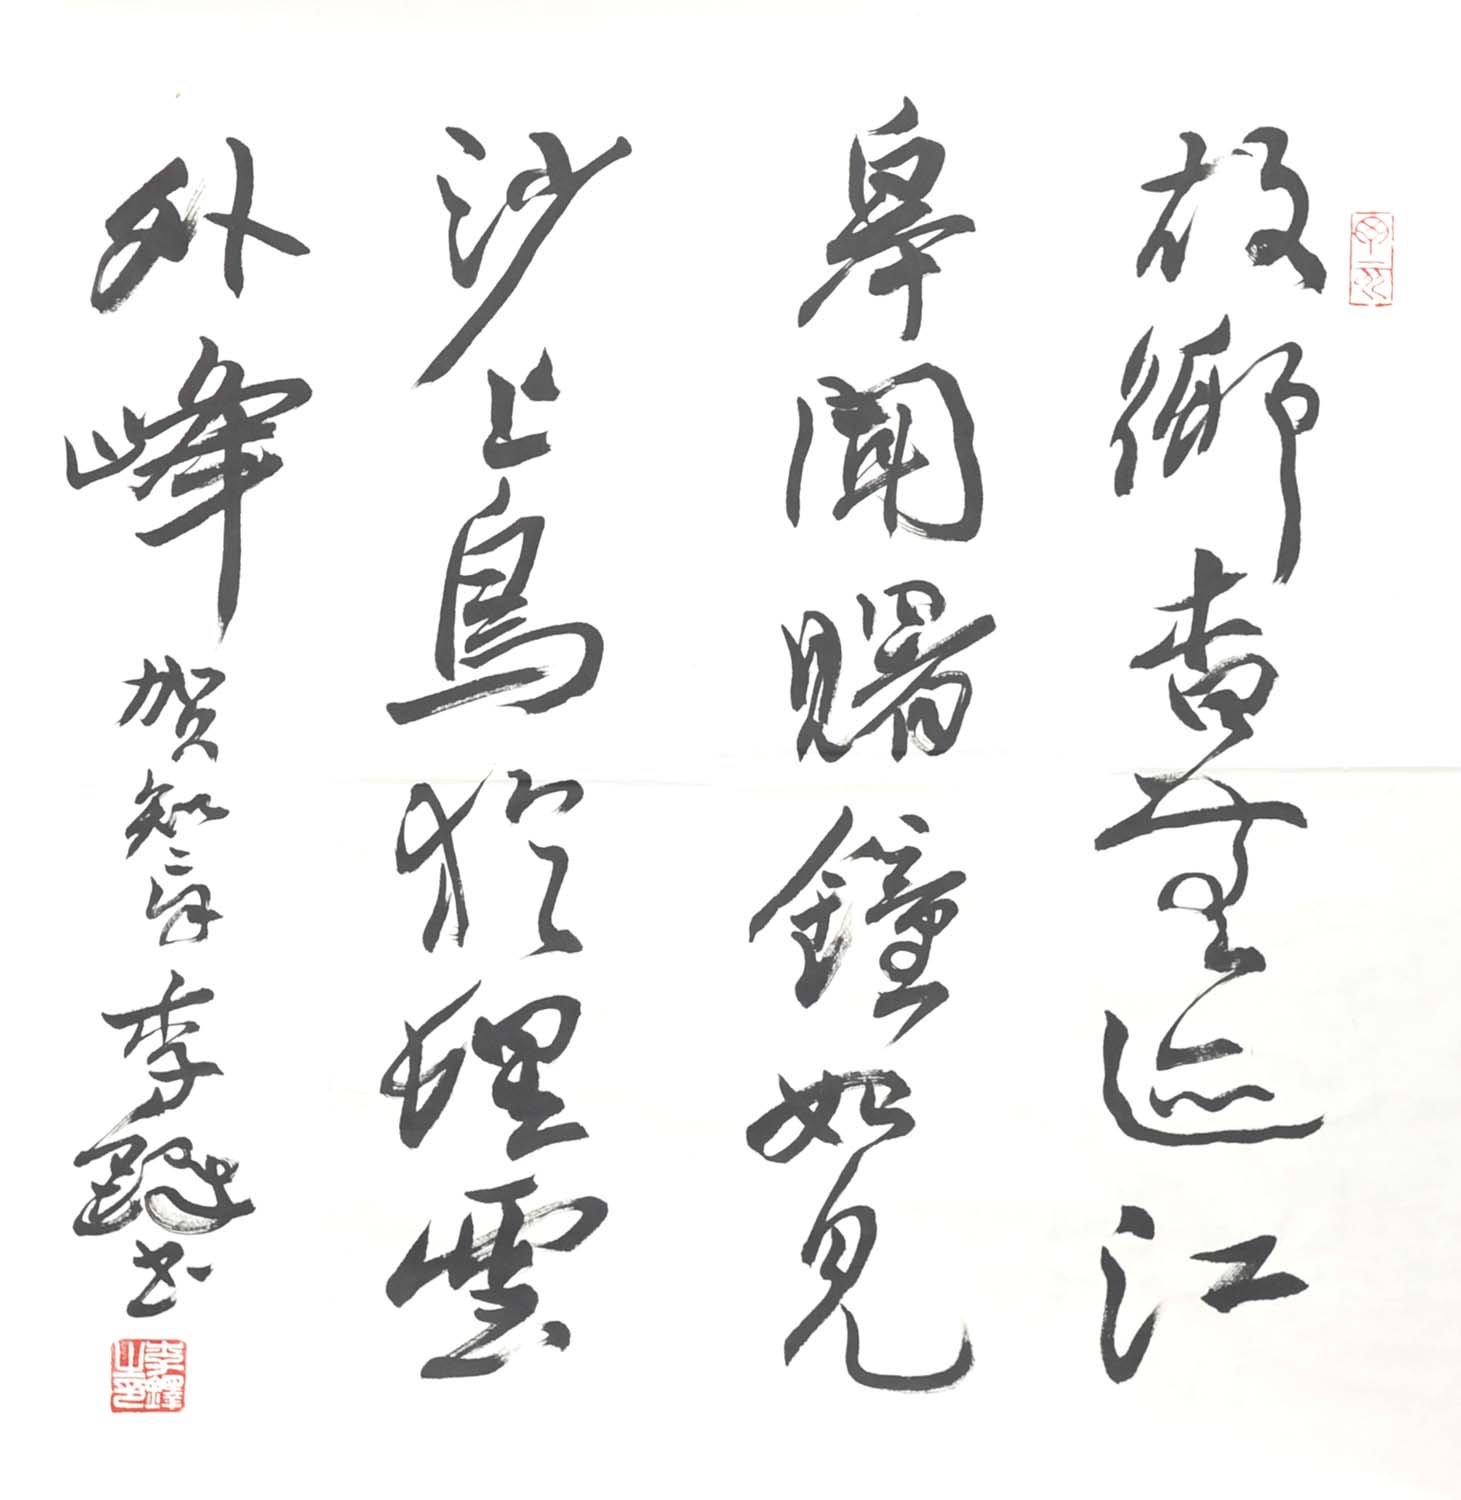 故鄉杳無迹江
皋聞曙鐘如見
沙上鳥於埋雲
外峰 賀知章 李鐸書
李鐸之印